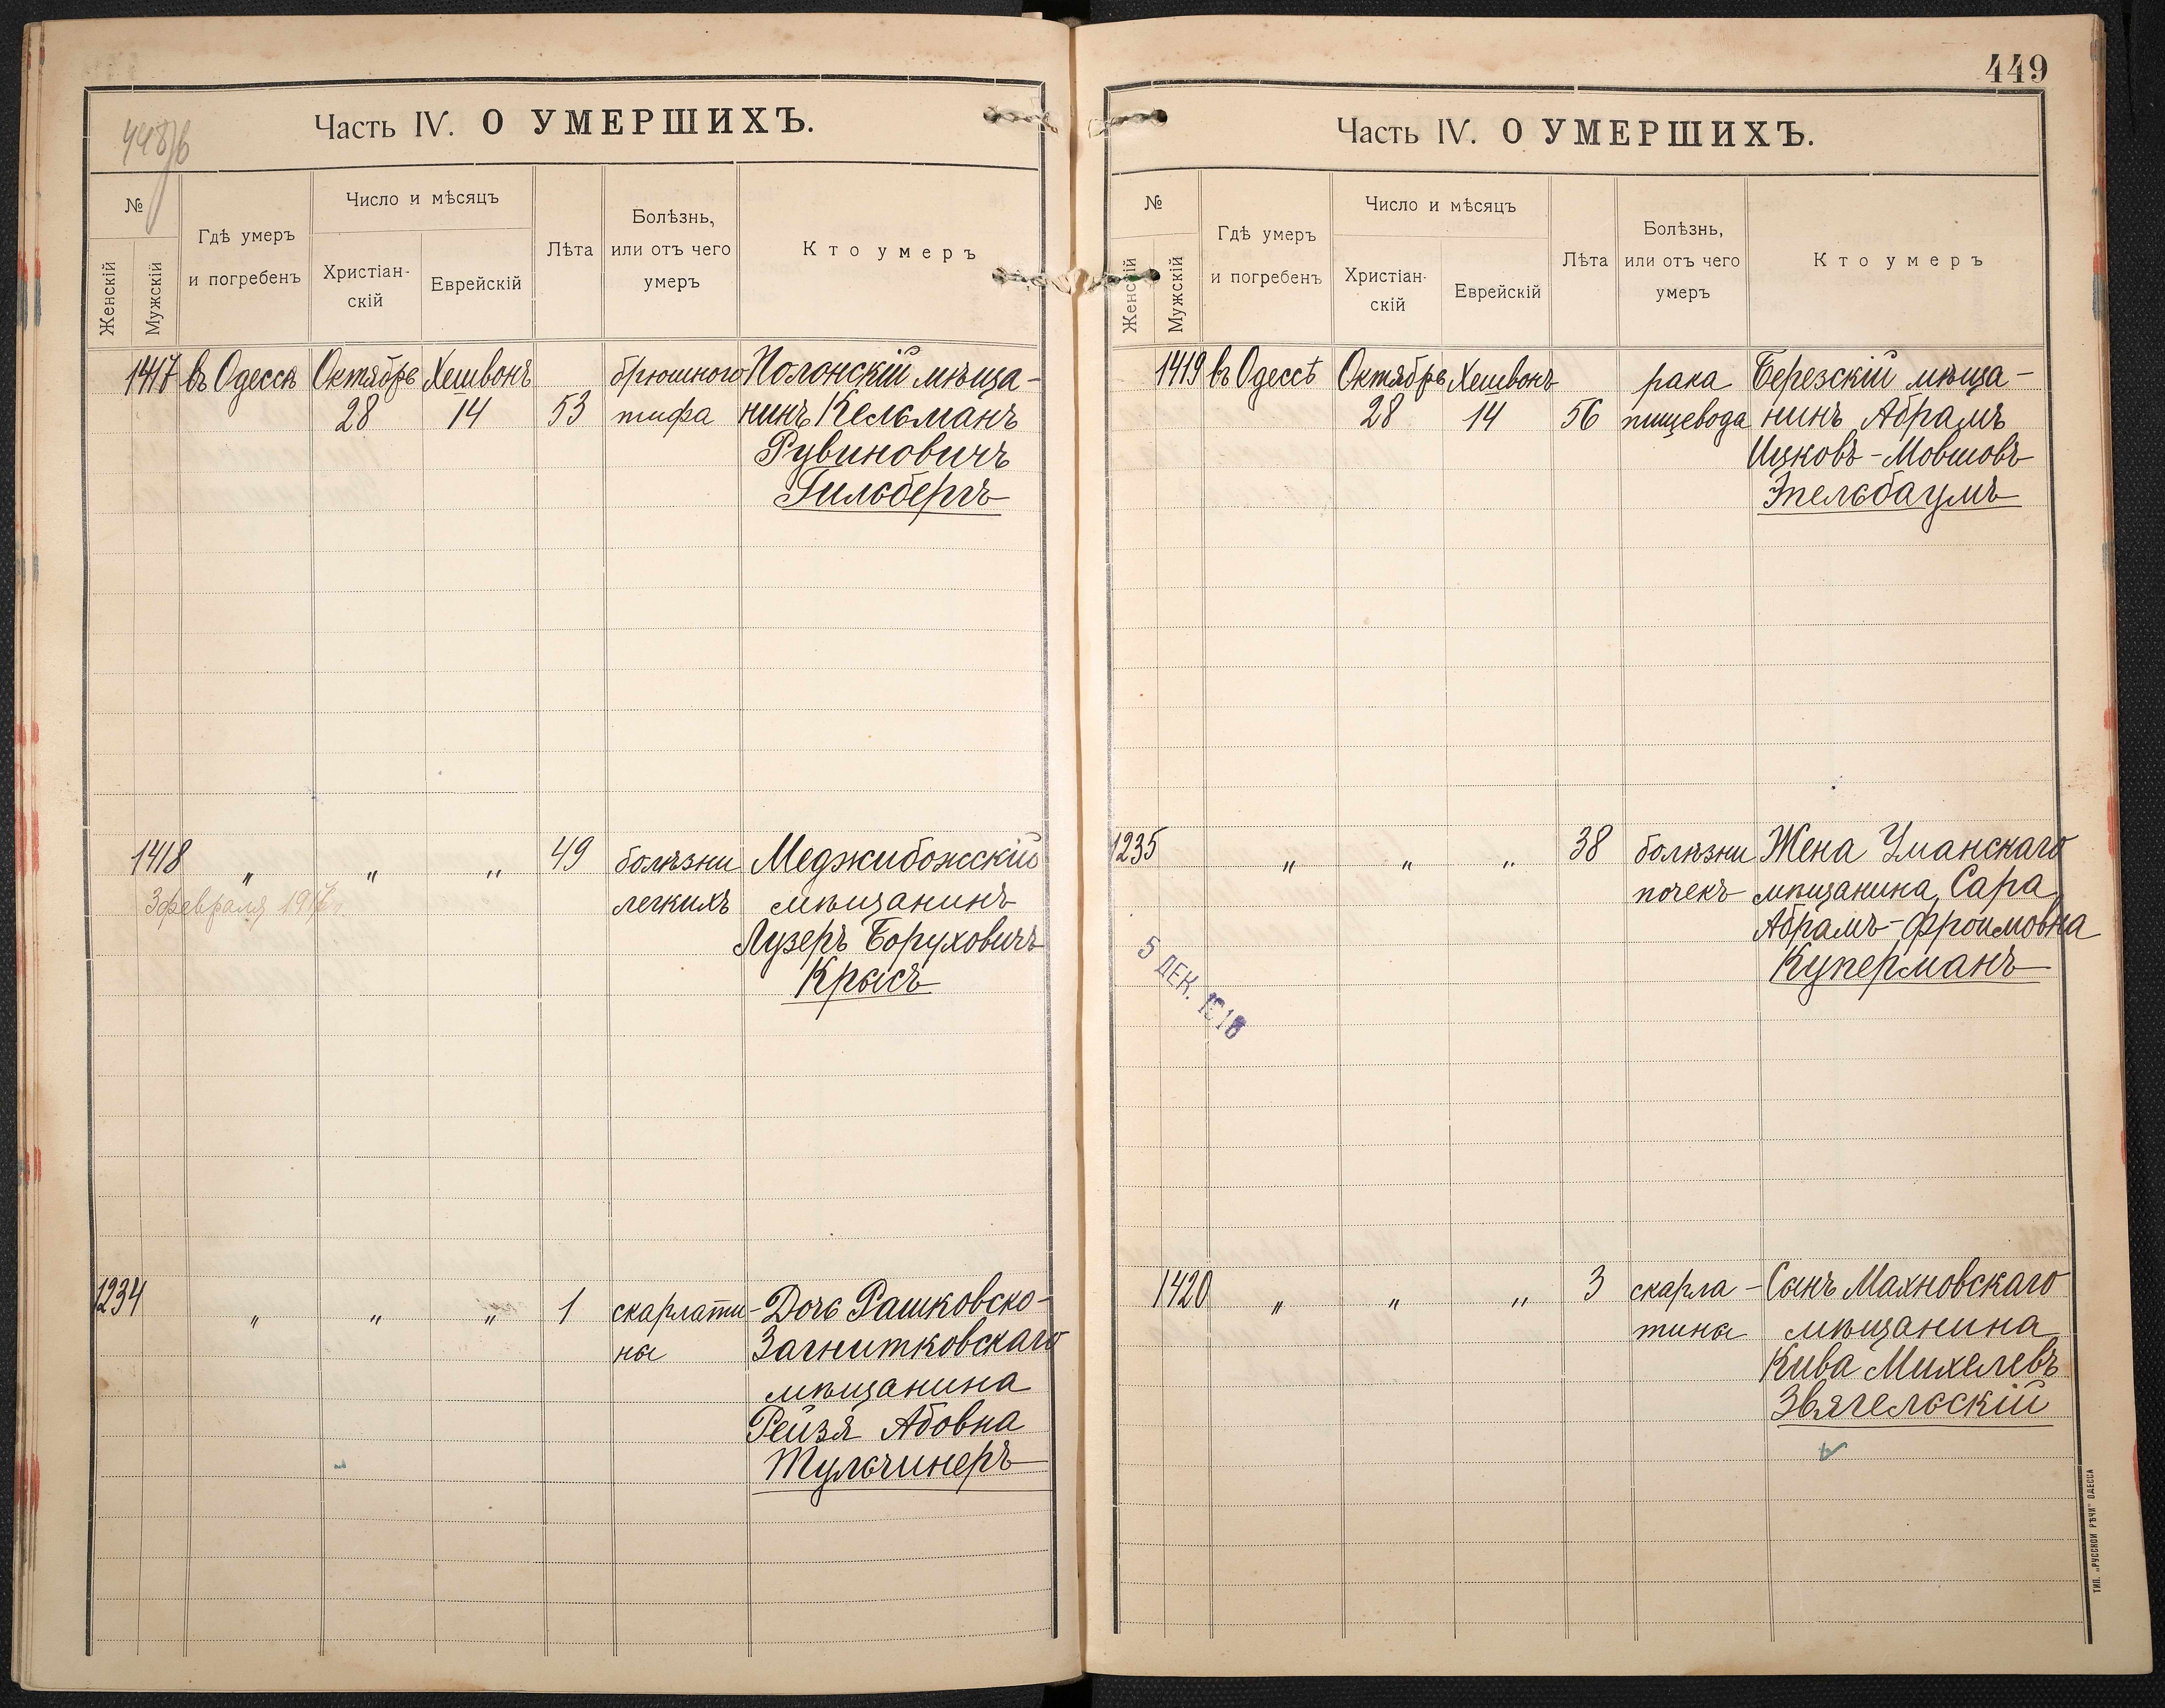 448/б
Часть IV. О УМЕРШИХЪ.
№
Женскій
Мужскій
Гдѣ умеръ
и погребенъ
Число и мѣсяцъ
Христіан-
скій
Еврейскій
Лѣта
Болѣзнь,
или отъ чего
умеръ
Кто умеръ
1417 въ Одессѣ Октябрь Хешвонъ брюшного Полонскій мѣща-
28 14 53 тифа нинъ Кельманъ
Рувиновичъ
Гильбергъ
1418 " " " 49 болѣзни Меджибожскій
3 февраля легкихъ мѣщанинъ
Лузеръ Боруховичъ
Крысъ
1234 " " " 1 скарлати- Дочь Рашковско-
на Загнитковскаго
мѣщанина
Рейзя Абовна
Тульчинеръ
449
Часть IV. О УМЕРШИХЪ.
№
Женскій
Мужскій
Гдѣ умеръ
и погребенъ
Число и мѣсяцъ
Христіан-
скій
Еврейскій
Лѣта
Болѣзнь,
или отъ чего
умеръ
Кто умеръ
1419 въ Одессѣ Октябрь Хешвонъ рака Березскій мѣща-
28 14 56 пищевода нинъ Абрамъ
Ицковъ-Мовшовъ
Эпельбаумъ
1235 " " " 38 болѣзни Жена Уманскаго
почекъ мѣщанина, Сара
Абрамъ-Фроимовна
Куперманъ
5 ДЕК. 1916
1420 " " " 3 скарла- Сынъ Махновскаго
тина мѣщанина
Кива Михелевъ
Звягельскій
ТИП. „РУССКОЙ РѢЧИ" ОДЕССА